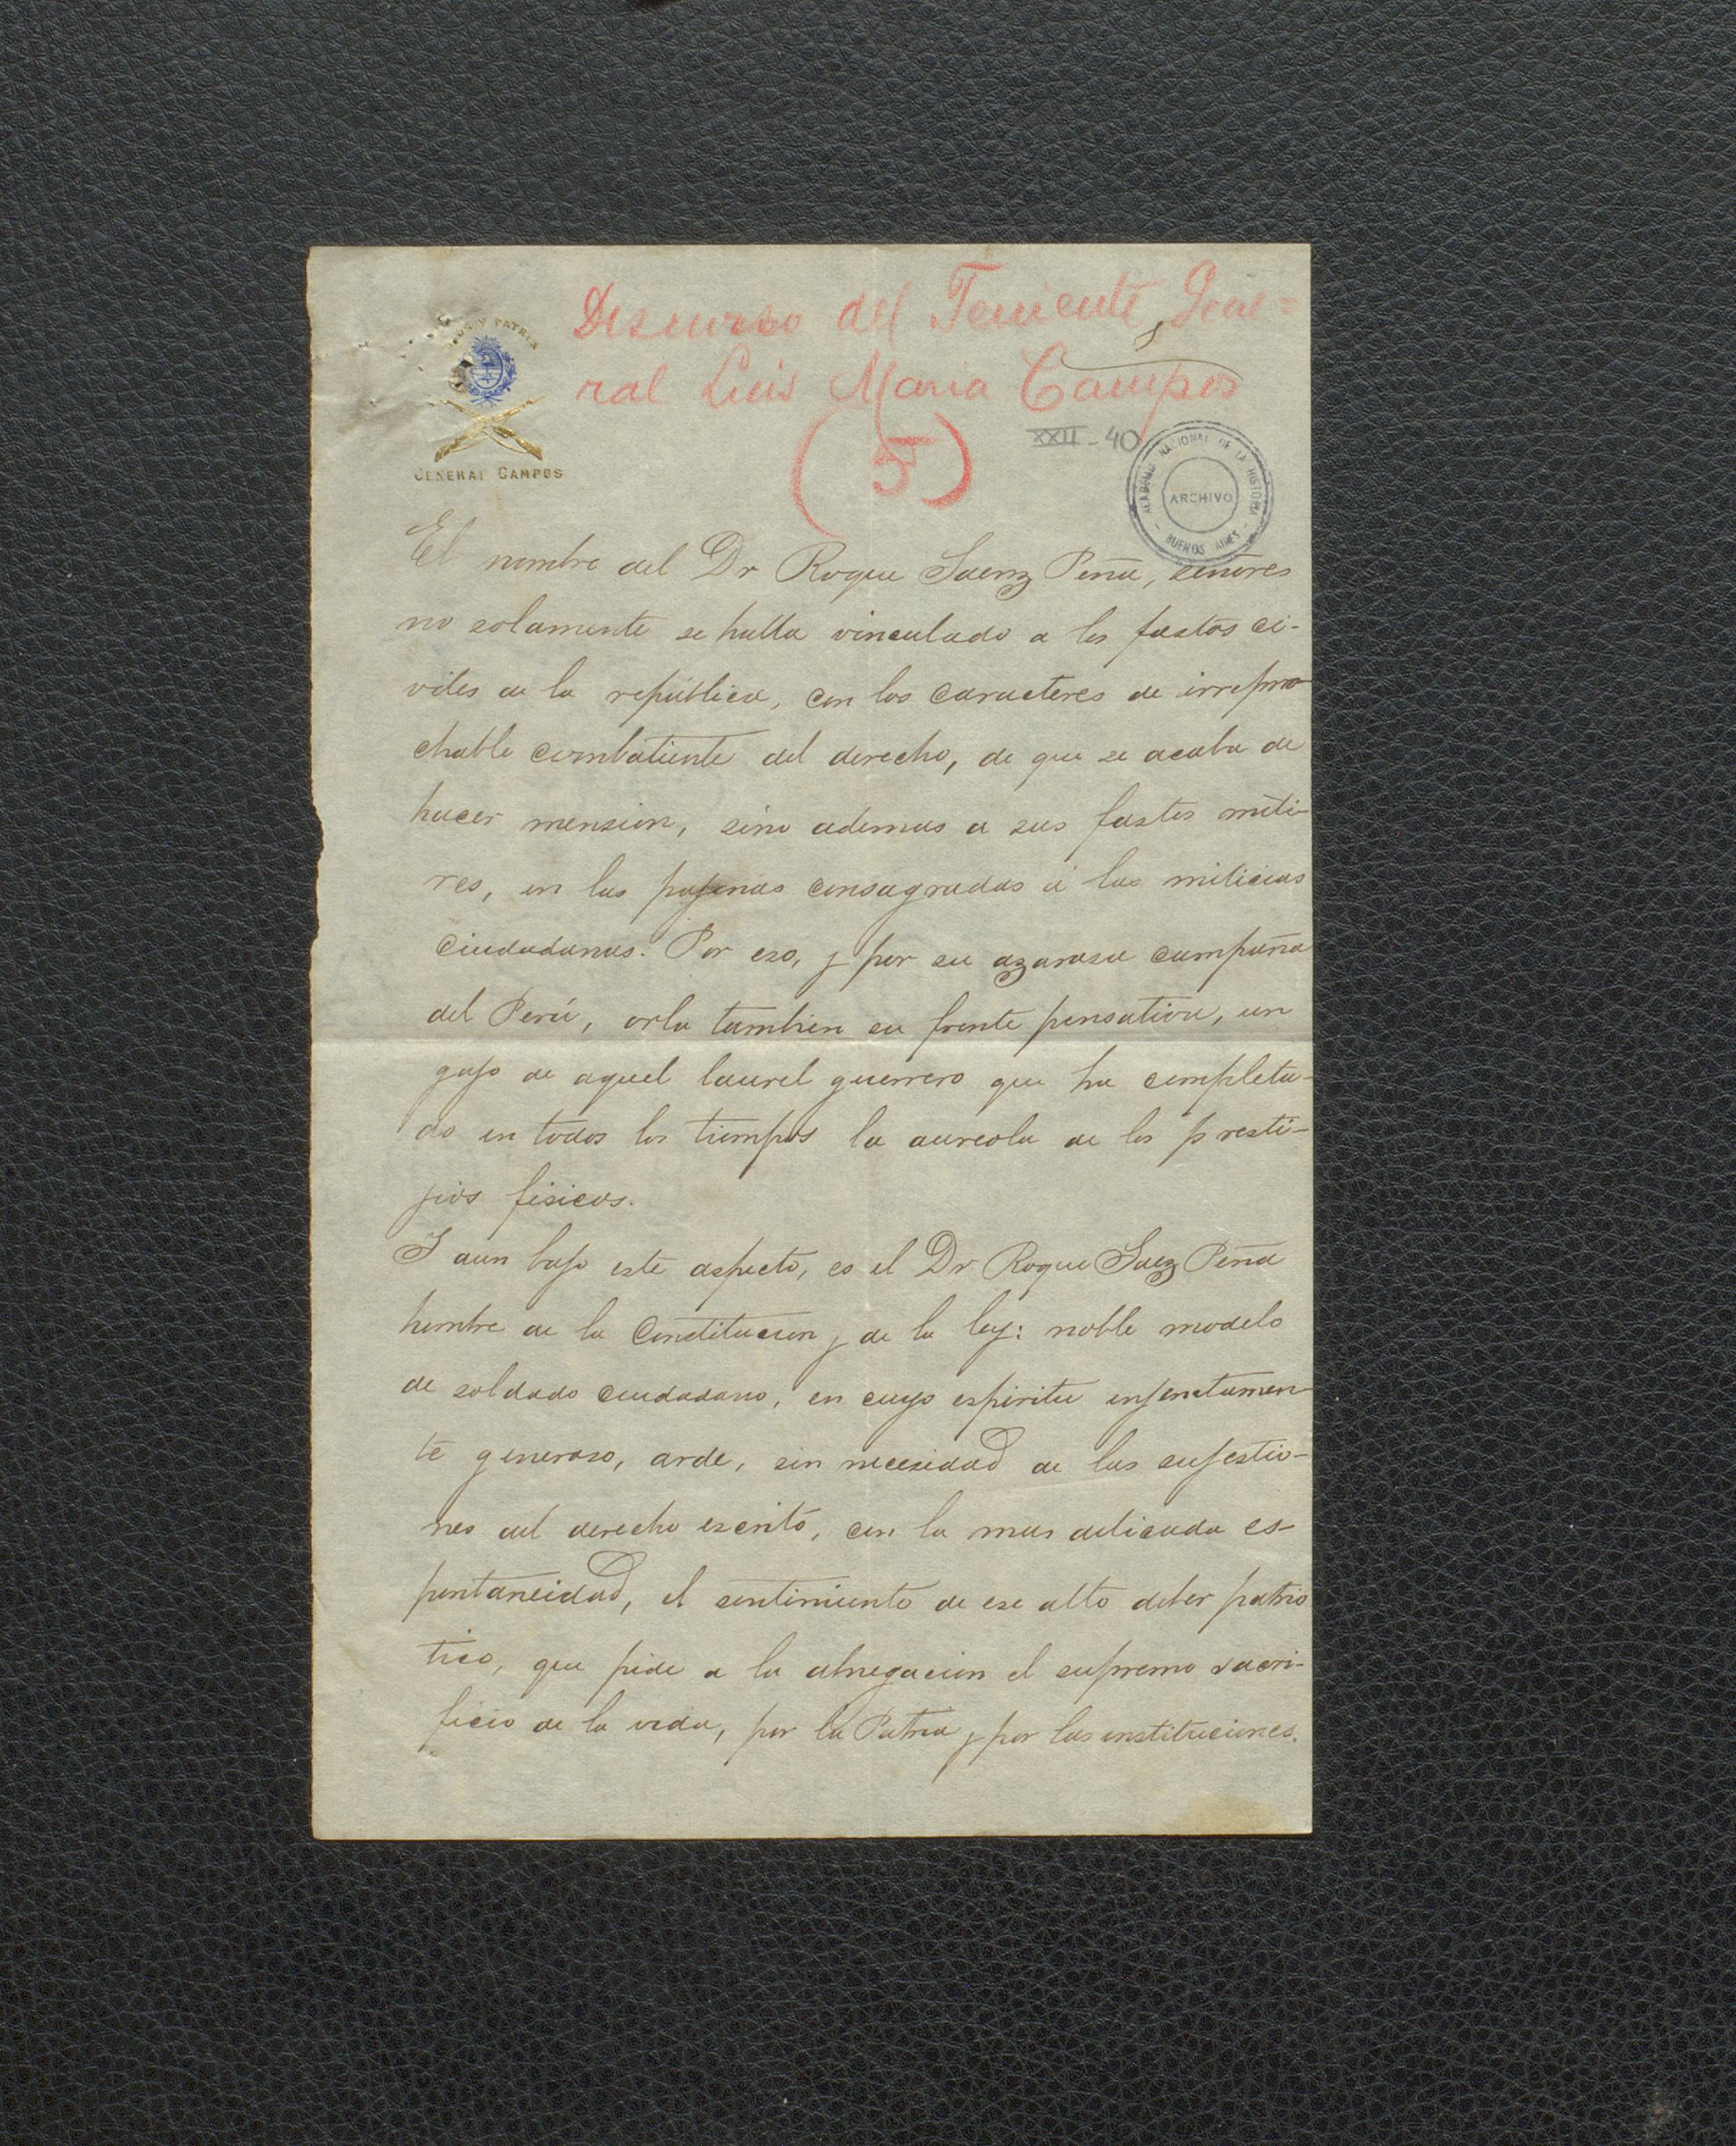 Discurso del Teniente Gene=
ral Luis Maria Campos
(5)
XXII-40
ACADEMIA NACIONAL DE LA HISTORIA
ARCHIVO
BUENOS AIRES
Y PATRIA
GENERAL CAMPOS
El nombre del Dr Roque Saenz Peña, señores
no solamente se halla vinculado a los fastos ci-
viles de la república, con los caracteres de irrepro
chable combatiente del derecho, de que se acaba de
hacer mension, sino ademas a sus fastos milit-
res, en las pajinas consagradas á las milicias
ciudadanas. Por eso, y por su azarosa campaña
del Perú, orla tambien su frente pensativa, un
gajo de aquel laurel guerrero que ha completa-
do en todos los tiempos la aureola de los presti-
jios fisicos.
I aun bajo este aspecto, es el Dr Roque Saez Peña
hombre de la Constitucion y de la ley: noble modelo
de soldado ciudadano, en cuyo espiritu injenitamen
te generoso, arde, sin necesidad de las sujestio-
nes del derecho escrito, con la mas delicada es-
pontaneidad, el sentimiento de ese alto deber patrio
tico, que pide a la abnegacion el supremo sacri-
ficio de la vida, por la Patria y por las instituciones.